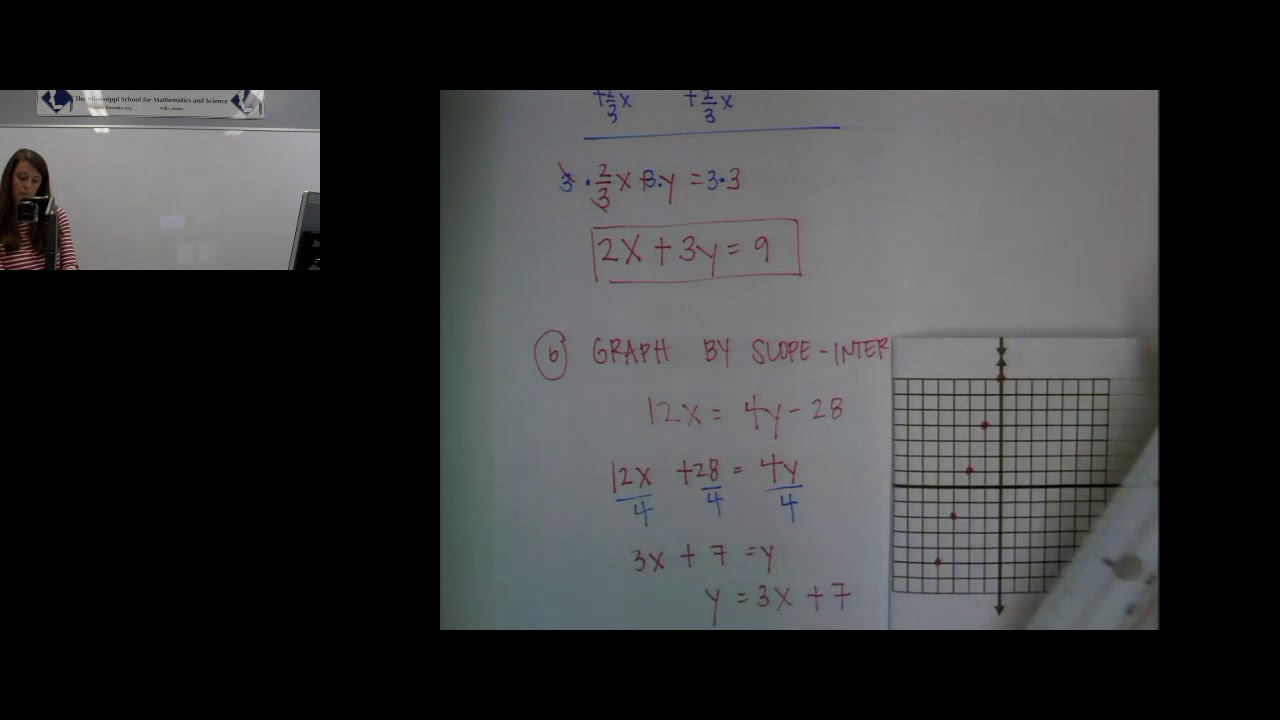 The Mississippi School for Mathematics and Science
+2/3x +2/3x
3 · 2/3 x + 3·y = 3·3
2x + 3y = 9
6 GRAPH BY SLOPE-INTER
12x = 4y - 28
12x/4 + 28/4 = 4y/4
3x + 7 = y
y = 3x + 7